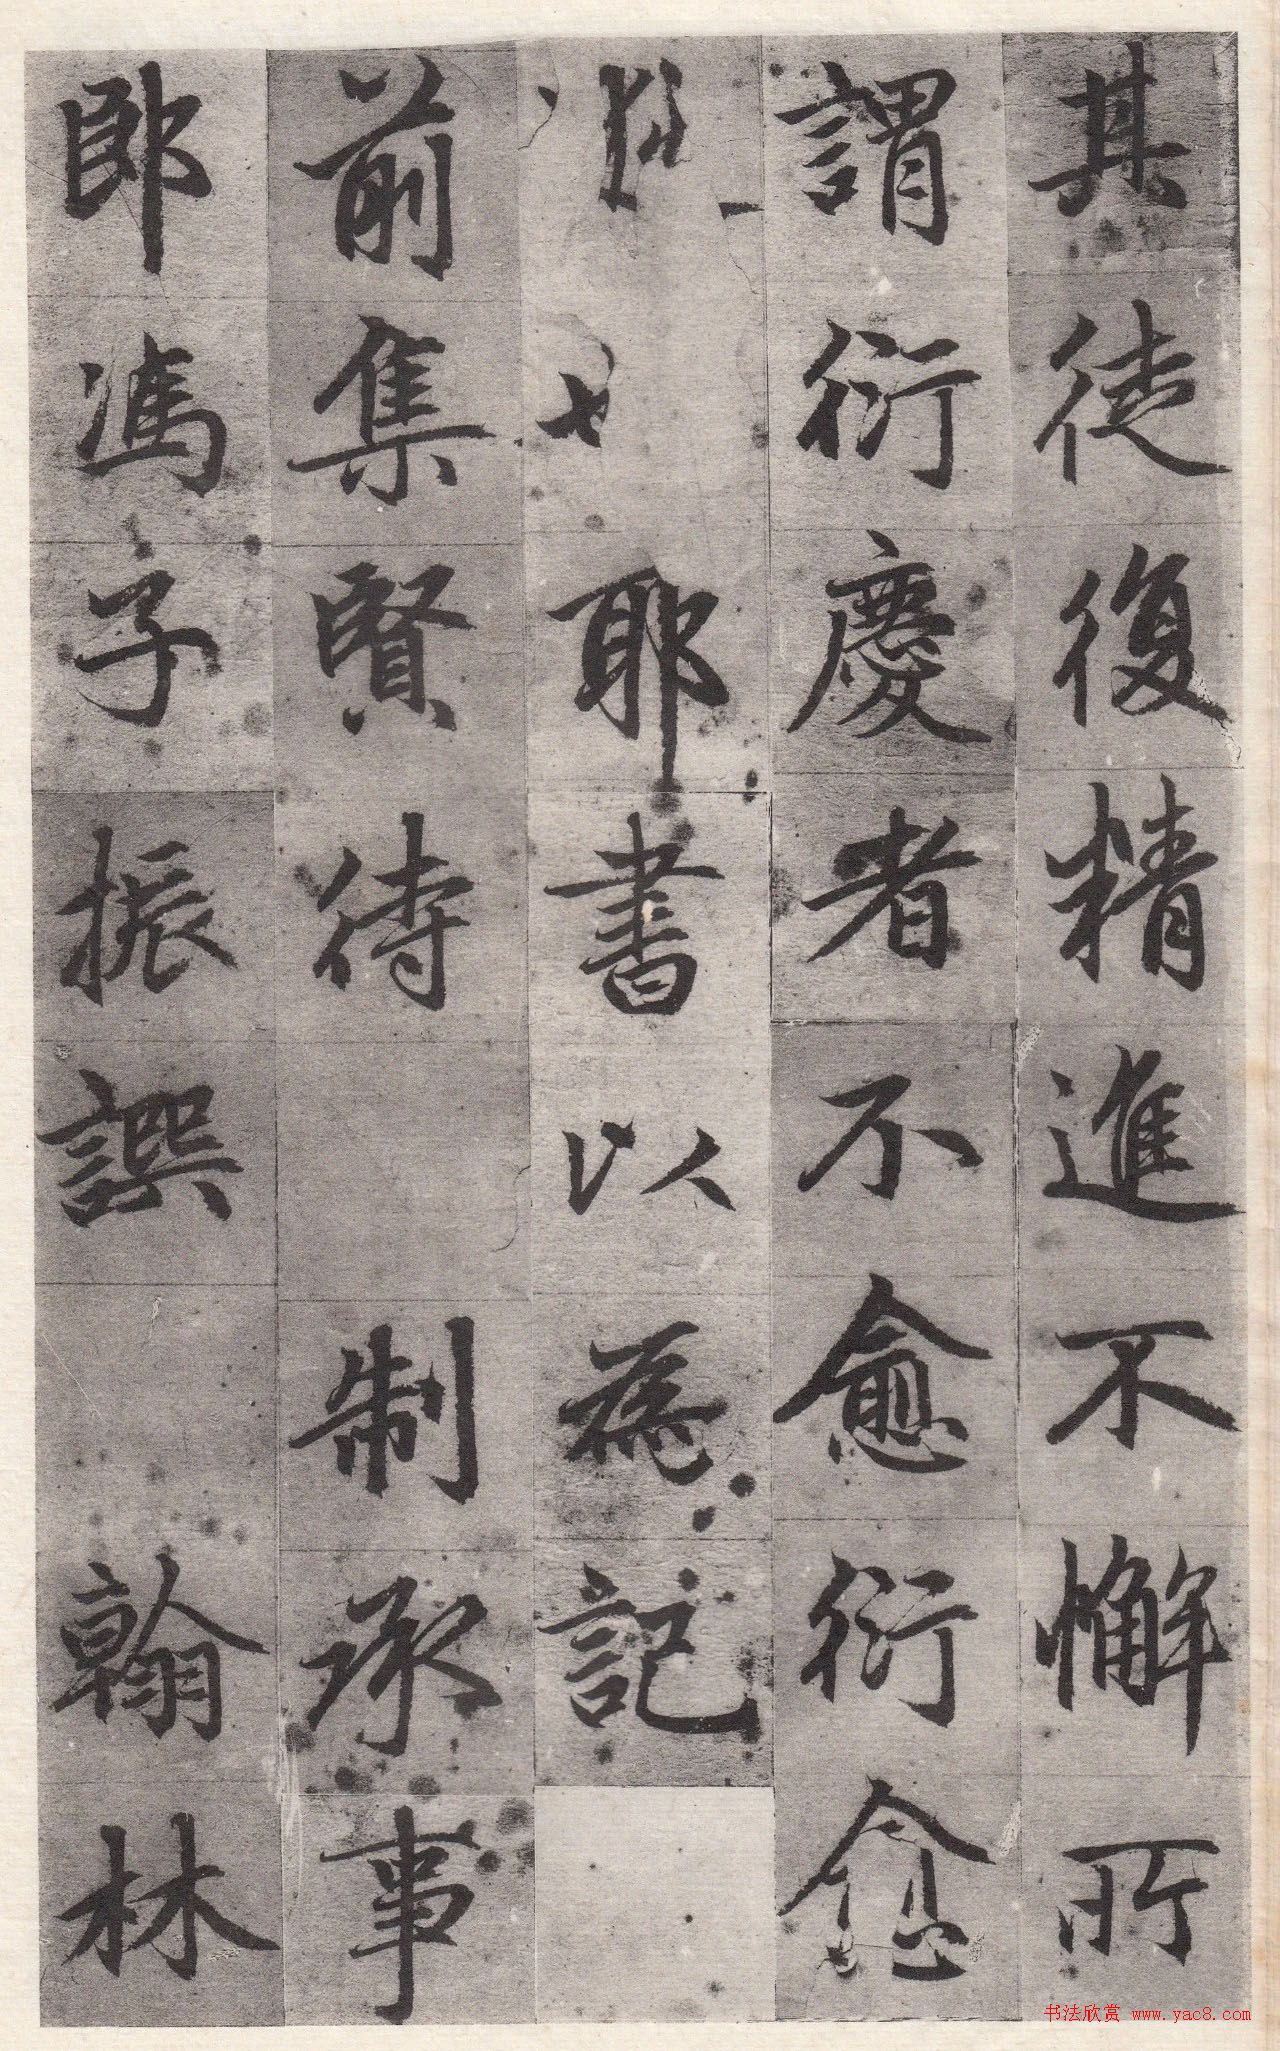 其徒復精進不懈所
謂衍慶者不愈衍愈
耶書以為記
前集賢待制承事
郎馮子振譔翰林
书法欣赏 www.yac8.com